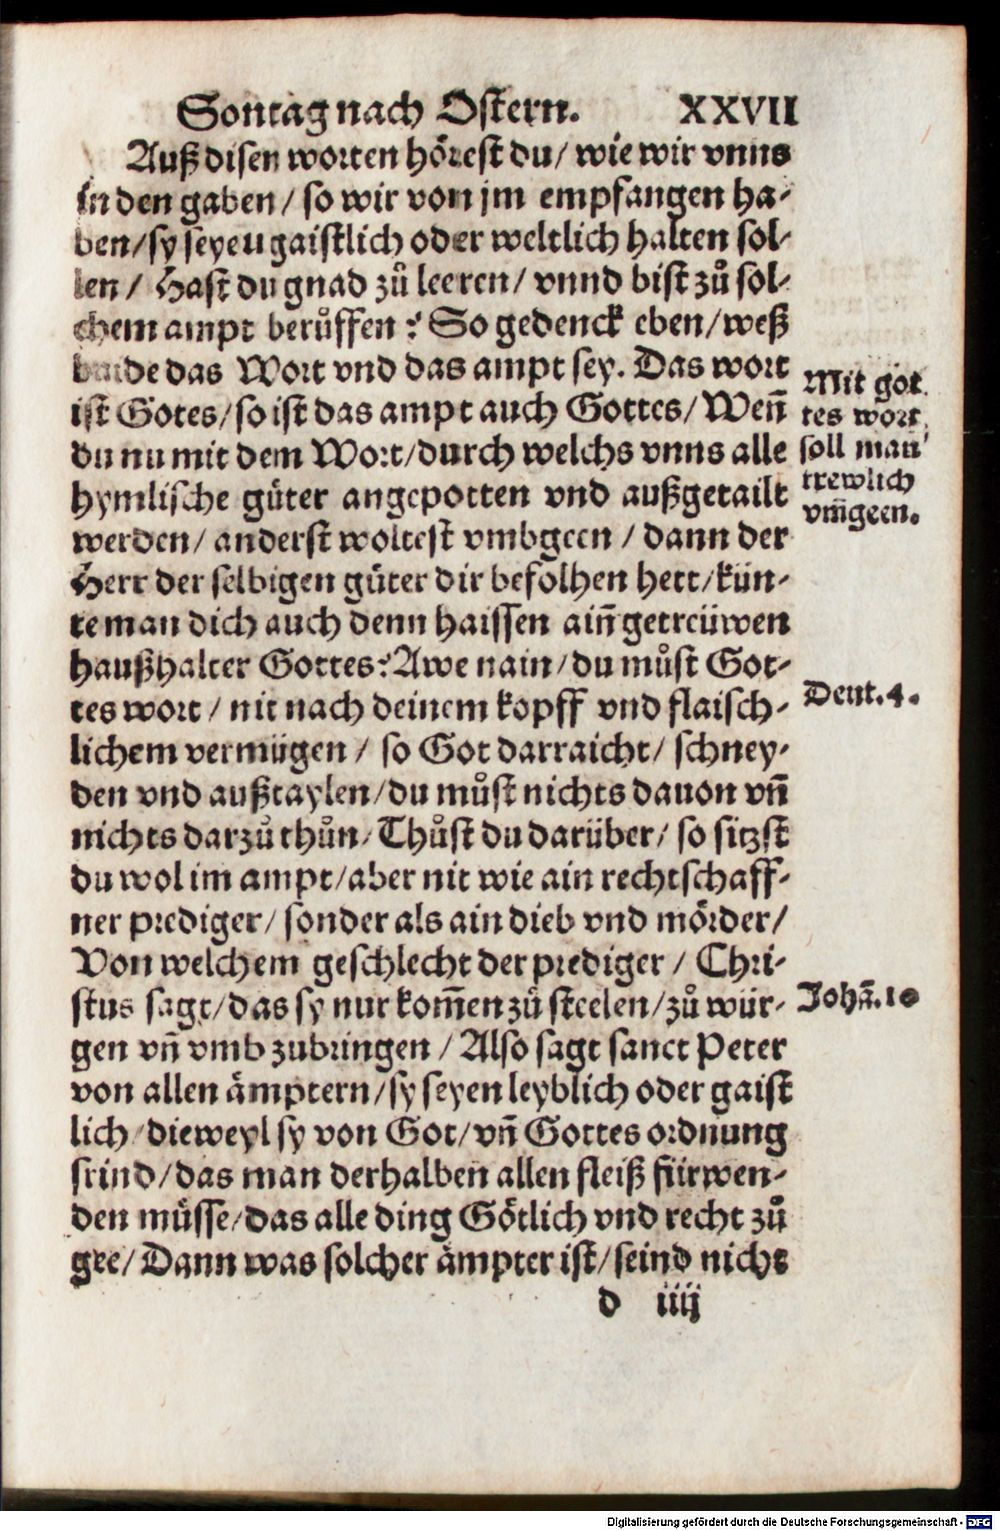 Sontag nach Ostern. XXVII
Auß disen worten hörest du/ wie wir vnns
in den gaben/ so wir von jm empfangen ha-
ben/ sy seyen gaistlich oder weltlich halten sol-
len/ Hast du gnad zů leeren/ vnnd bist zů sol-
chem ampt berůffen? So gedenck eben/ weß
baide das Wort vnd das ampt sey. Das wort
ist Gotes/ so ist das ampt auch Gottes/ Weñ
du nu mit dem Wort/ durch welchs vnns alle
hymlische güter angepotten vnd außgetailt
werden/ anderst woltest vmbgeen/ dann der
Herr der selbigen güter dir befolhen hett/ kün-
te man dich auch denn haissen aiñ getreüwen
haußhalter Gottes? Awe nain/ du můst Got-
tes wort/ nit nach deinem kopff vnd flaisch-
lichem vermügen/ so Got darraicht/ schney-
den vnd außtaylen/ du můst nichts dauon vñ
nichts darzů thůn/ Thůst du darüber/ so sitzst
du wol im ampt/ aber nit wie ain rechtschaff-
ner prediger/ sonder als ain dieb vnd mörder/
Von welchem geschlecht der prediger/ Chri-
stus sagt/ das sy nur kom̃en zů steelen/ zů wür-
gen vñ vmb zubringen/ Also sagt sanct Peter
von allen ämptern/ sy seyen leyblich oder gaist
lich/ dieweyl sy von Got/ vñ Gottes ordnung
seind/ das man derhalben allen fleiß fürwen-
den müsse/ das alle ding Götlich vnd recht zů
gee/ Dann was solcher ämpter ist/ seind nicht
d iiij
Mit got
tes wort
soll man
trewlich
vm̃geen.
Deut. 4.
Johã. 10
Digitalisierung gefördert durch die Deutsche Forschungsgemeinschaft - DFG